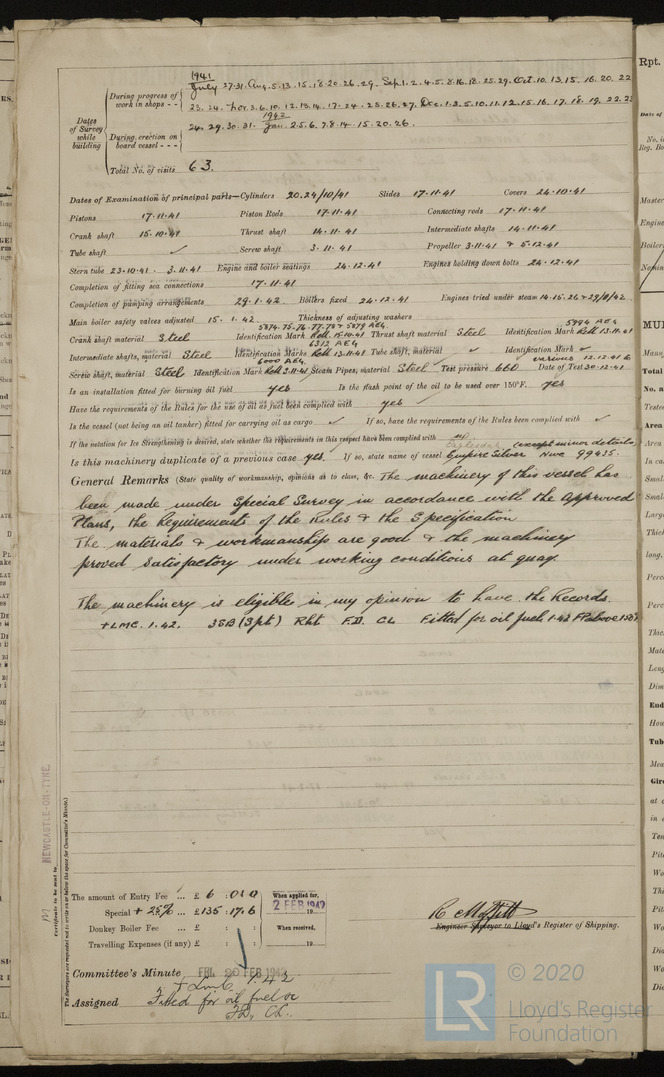 1941
During progress of work in shops - - July 27.31. Aug. 5.13.15.18.20.26.29. Sep. 1.2.4.5.8.16.18.25.29. Oct. 10.13.15.16.20.22
23.24. Nov. 3.6.10.12.13.14.17.24.25.26.27. Dec. 1.2.5.10.11.12.15.16.17.18.19.22.23
1942
Dates of Survey while building
During erection on board vessel - - - 24.29.30.31. Jan. 2.5.6.7.8.14.15.20.26.
Total No. of visits 63.
Dates of Examination of principal parts—Cylinders 20.24/10/41 Slides 17.11.41 Covers 24.10.41
Pistons 17.11.41 Piston Rods 17.11.41 Connecting rods 17.11.41
Crank shaft 15.10.41 Thrust shaft 14.11.41 Intermediate shafts 14.11.41
Tube shaft ✓ Screw shaft 3.11.41 Propeller 3.11.41 & 5.12.41
Stern tube 23.10.41. 3.11.41 Engine and boiler seatings 24.12.41 Engines holding down bolts 24.12.41
Completion of fitting sea connections 17.11.41
Completion of pumping arrangements 29.1.42 Boilers fixed 24.12.41 Engines tried under steam
Main boiler safety valves adjusted 15.1.42. Thickness of adjusting washers
5874.75.76.77.78 & 5879 AEG. 5994 AEG
Crank shaft material Steel Identification Mark 15.10.41 Thrust shaft material Steel Identification Mark 13.11.41
6312 AEG
Intermediate shafts, material Steel Identification Marks 13.11.41 Tube shaft, material ✓ Identification Mark ✓
6000 AEG. various 12.12.41 to
Screw shaft, material Steel Identification Mark 3.11.41 Steam Pipes, material Steel Test pressure 660 Date of Test 30.12.41
Is an installation fitted for burning oil fuel yes Is the flash point of the oil to be used over 150°F. yes
Have the requirements of the Rules for the use of oil as fuel been complied with yes
Is the vessel (not being an oil tanker) fitted for carrying oil as cargo ✓ If so, have the requirements of the Rules been complied with ✓
If the notation for Ice Strengthening is desired, state whether the requirements in this respect have been complied with (except minor details)
Is this machinery duplicate of a previous case yes. If so, state name of vessel Empire Silver Nwc 99435.
General Remarks (State quality of workmanship, opinions as to class, &c. The machinery of this vessel has
been made under Special Survey in accordance with the Approved
Plans, the Requirements of the Rules & the Specification
The materials & workmanship are good & the machinery
proved satisfactory under working conditions at quay.
The machinery is eligible in my opinion to have the Records
+LMC. 1.42. 3SB (Spt) Rht F.D. CL Fitted for oil fuel 1.42 FP above 150°F.
NEWCASTLE-ON-TYNE.
Certificate to be sent to
The Surveyors are requested not to write on or below the space for Committee's Minute.)
The amount of Entry Fee ... £ 6 : 0 : 0 When applied for,
Special + 25% ... £ 135 : 17 : 6 2 FEB 1942
19
Donkey Boiler Fee ... £ : : When received,
Travelling Expenses (if any) £ : : 19
R. Moffitt
Engineer Surveyor to Lloyd's Register of Shipping.
Committee's Minute FRI. 20 FEB 1942
Assigned + LMC 1.42
Fitted for oil fuel
F.D., CL.
© 2020
LR
Lloyd's Register
Foundation
Rpt.